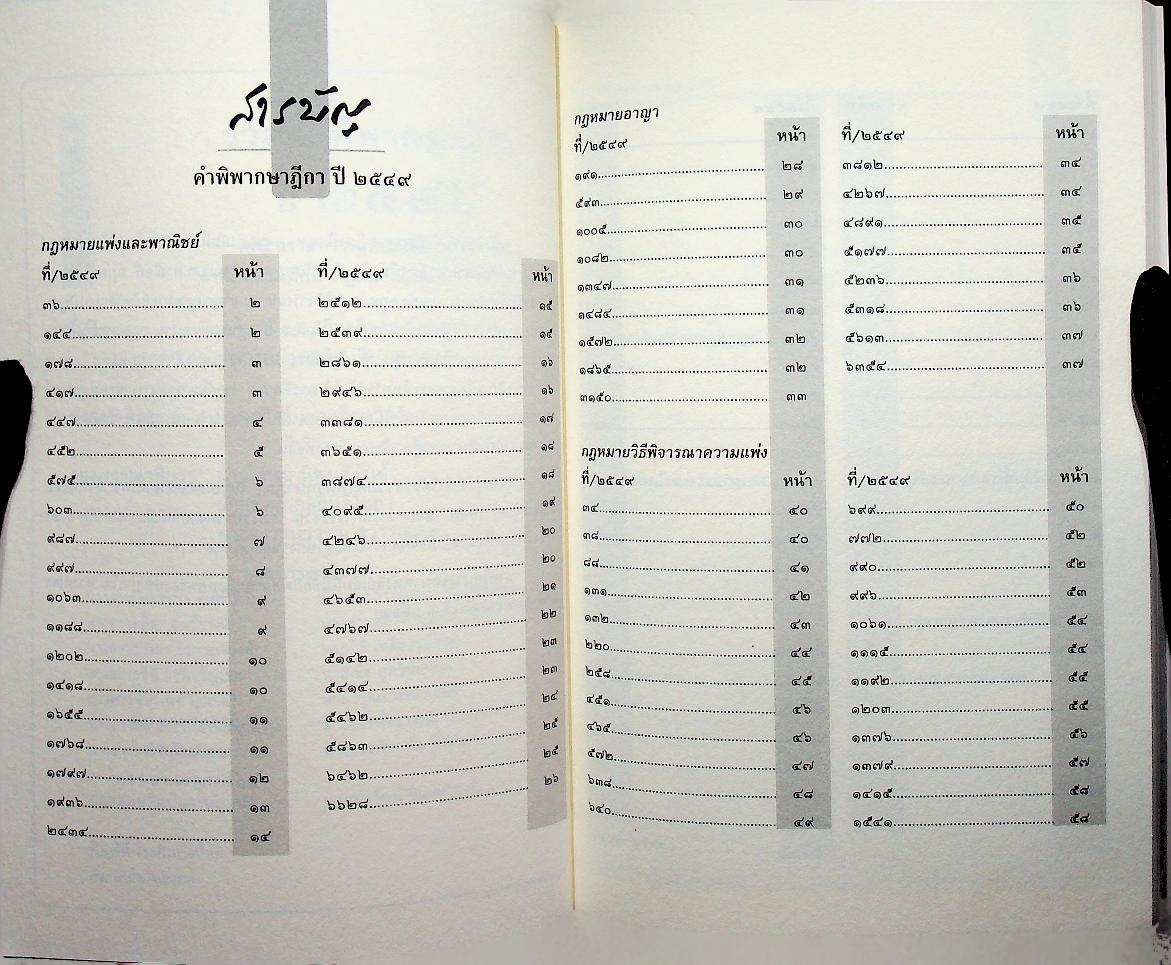 สารบัญ
คำพิพากษาฎีกา ปี ๒๕๔๙
กฎหมายแพ่งและพาณิชย์
ที่/๒๕๔๙ หน้า
๓๖ ๒
๑๔๔ ๒
๑๗๘ ๓
๔๑๗ ๓
๔๔๗ ๔
๔๕๒ ๕
๕๗๕ ๖
๖๐๓ ๖
๙๘๗ ๗
๙๙๗ ๘
๑๐๖๓ ๙
๑๑๘๘ ๙
๑๒๐๒ ๑๐
๑๔๑๘ ๑๐
๑๖๕๕ ๑๑
๑๗๖๘ ๑๑
๑๗๙๗ ๑๒
๑๙๓๖ ๑๓
๒๔๓๔ ๑๔
ที่/๒๕๔๙ หน้า
๒๕๑๒ ๑๕
๒๕๓๙ ๑๕
๒๘๖๑ ๑๖
๒๙๔๖ ๑๖
๓๓๘๑ ๑๗
๓๖๕๑ ๑๘
๓๘๗๔ ๑๘
๔๐๙๕ ๑๙
๔๒๔๖ ๒๐
๔๓๗๗ ๒๐
๔๖๕๓ ๒๑
๔๗๖๗ ๒๒
๕๑๔๒ ๒๓
๕๔๑๔ ๒๓
๕๔๖๒ ๒๔
๕๘๖๓ ๒๕
๖๔๖๒ ๒๕
๖๖๒๘ ๒๖
กฎหมายอาญา
ที่/๒๕๔๙ หน้า
๑๙๑ ๒๘
๕๙๓ ๒๙
๑๐๐๕ ๓๐
๑๐๘๒ ๓๐
๑๓๔๗ ๓๑
๑๔๘๔ ๓๑
๑๕๗๒ ๓๒
๑๘๖๕ ๓๒
๓๑๕๐ ๓๓
ที่/๒๕๔๙ หน้า
๓๘๑๒ ๓๔
๔๒๖๗ ๓๔
๔๘๙๑ ๓๕
๕๑๗๗ ๓๕
๕๒๓๖ ๓๖
๕๓๑๘ ๓๖
๕๖๑๓ ๓๗
๖๓๕๔ ๓๗
กฎหมายวิธีพิจารณาความแพ่ง
ที่/๒๕๔๙ หน้า
๓๔ ๔๐
๓๘ ๔๐
๘๘ ๔๑
๑๓๑ ๔๒
๑๓๒ ๔๓
๒๒๐ ๔๔
๒๕๘ ๔๕
๔๕๑ ๔๖
๔๖๕ ๔๖
๕๗๒ ๔๗
๖๓๘ ๔๘
๖๔๐ ๔๙
ที่/๒๕๔๙ หน้า
๖๙๙ ๕๐
๗๗๒ ๕๒
๙๙๐ ๕๒
๙๙๖ ๕๓
๑๐๖๑ ๕๔
๑๑๑๕ ๕๔
๑๑๙๒ ๕๕
๑๒๐๓ ๕๕
๑๓๗๖ ๕๖
๑๓๗๙ ๕๗
๑๔๑๕ ๕๘
๑๕๔๑ ๕๘